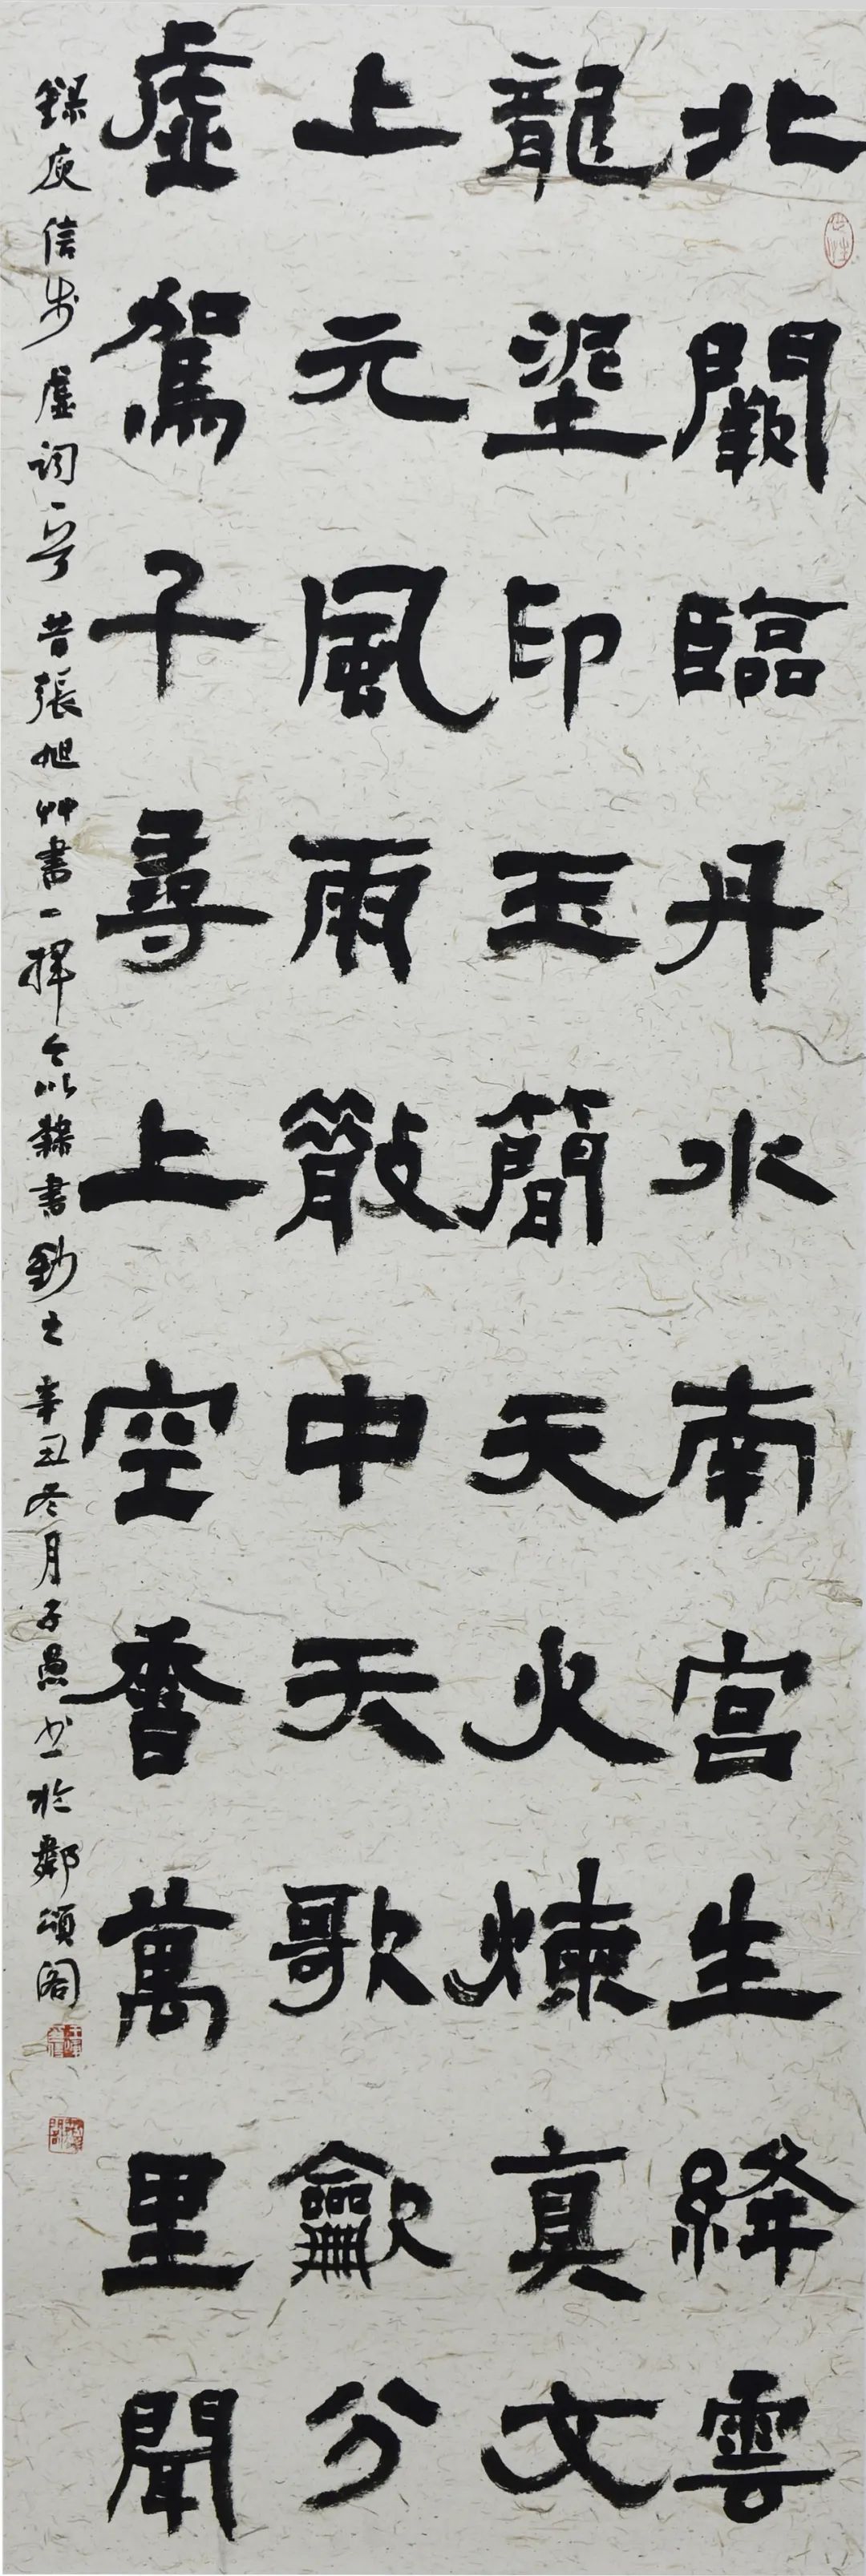 北闕臨丹水南宮生絳雲
龍埿印玉簡天火煉真文
上元風雨散中天歌龡分
虛駕千尋上空香萬里聞
錄庾信步虛詞一首昔張旭艸書一揮今以隸書鈔之辛丑冬月子愚書於頌閣